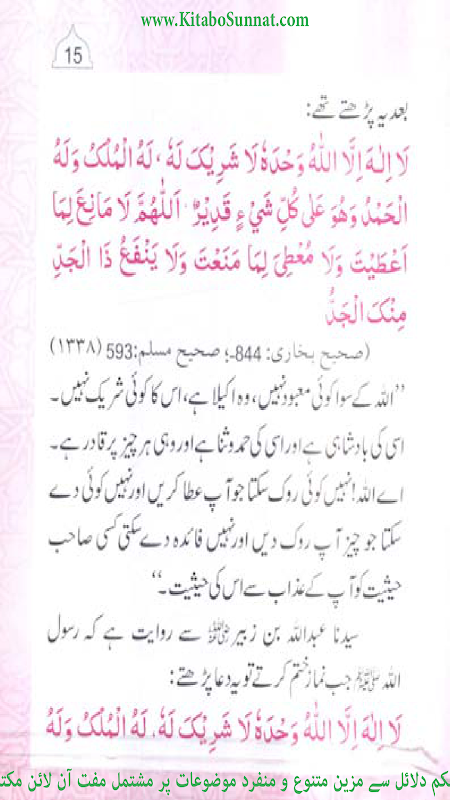 www.KitaboSunnat.com
15
بعد یہ پڑھتے تھے:
لَا اِلٰهَ اِلَّا اللّٰهُ وَحْدَهٗ لَا شَرِيْكَ لَهٗ، لَهُ الْمُلْكُ وَلَهُ
الْحَمْدُ وَهُوَ عَلٰى كُلِّ شَيْءٍ قَدِيْرٌ، اَللّٰهُمَّ لَا مَانِعَ لِمَا
اَعْطَيْتَ وَلَا مُعْطِيَ لِمَا مَنَعْتَ وَلَا يَنْفَعُ ذَا الْجَدِّ
مِنْكَ الْجَدُّ
(صحیح بخاری: 844، صحیح مسلم: 593 (۱۳۳۸)
”اللہ کے سوا کوئی معبود نہیں، وہ اکیلا ہے، اس کا کوئی شریک نہیں۔
اسی کی بادشاہی ہے اور اسی کی حمد و ثنا ہے اور وہی ہر چیز پر قادر ہے۔
اے اللہ! نہیں کوئی روک سکتا جو آپ عطا کریں اور نہیں کوئی دے
سکتا جو چیز آپ روک دیں اور نہیں فائدہ دے سکتی کسی صاحب
حیثیت کو آپ کے عذاب سے اس کی حیثیت۔“
سیدنا عبداللہ بن زبیر رضی اللہ عنہ سے روایت ہے کہ رسول
اللہ ﷺ جب نماز ختم کرتے تو یہ دعا پڑھتے:
لَا اِلٰهَ اِلَّا اللّٰهُ وَحْدَهٗ لَا شَرِيْكَ لَهٗ، لَهُ الْمُلْكُ وَلَهُ
دلائل سے مزین متنوع و منفرد موضوعات پر مشتمل مفت آن لائن